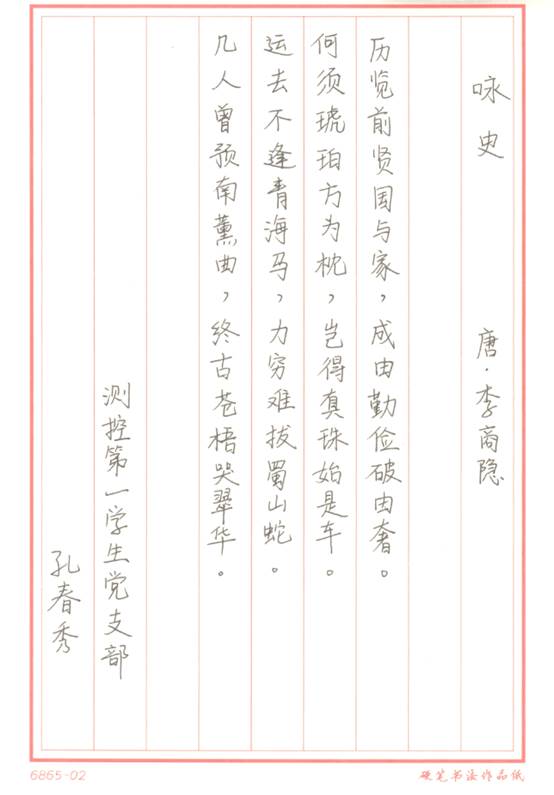 咏史 唐·李商隐
历览前贤国与家，成由勤俭破由奢。
何须琥珀方为枕，岂得真珠始是车。
运去不逢青海马，力穷难拔蜀山蛇。
几人曾预南薰曲，终古苍梧哭翠华。
测控第一学生党支部
孔春秀
6865-02 硬笔书法作品纸